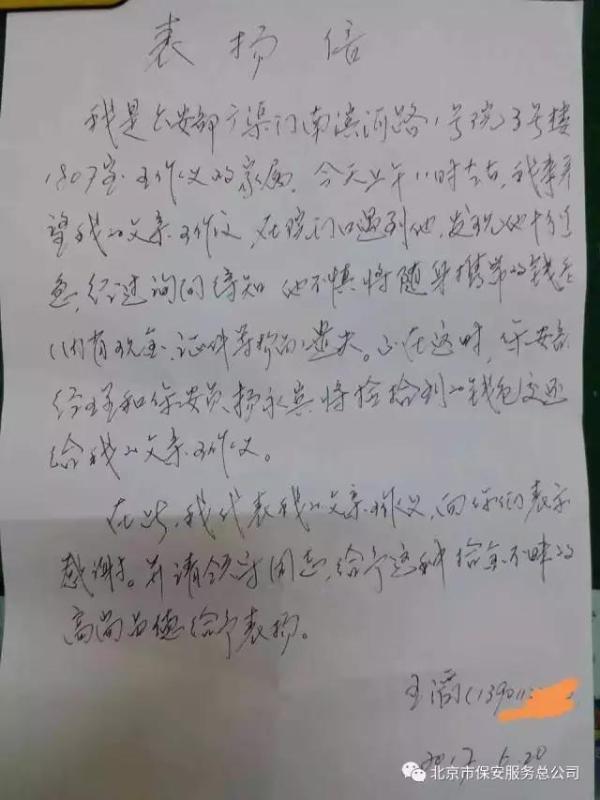 表扬信
我是公安部广渠门南滨河路1号院3号楼
1807室王作义的家属。今天上午11时左右,我来看
望我的父亲王作义,在院门口遇到他,发现他十分着
急,经过询问得知他不慎将随身携带的钱包
(内有现金、证件等物品)遗失。正在这时,保安部
经理和保安员杨永兵将捡拾到的钱包交还
给我的父亲王作义。
在此,我代表我的父亲王作义,向你们表示
感谢。并请领导同志,给予这种拾金不昧的
高尚品德给予表扬。
(13901
2017.6.20
北京市保安服务总公司